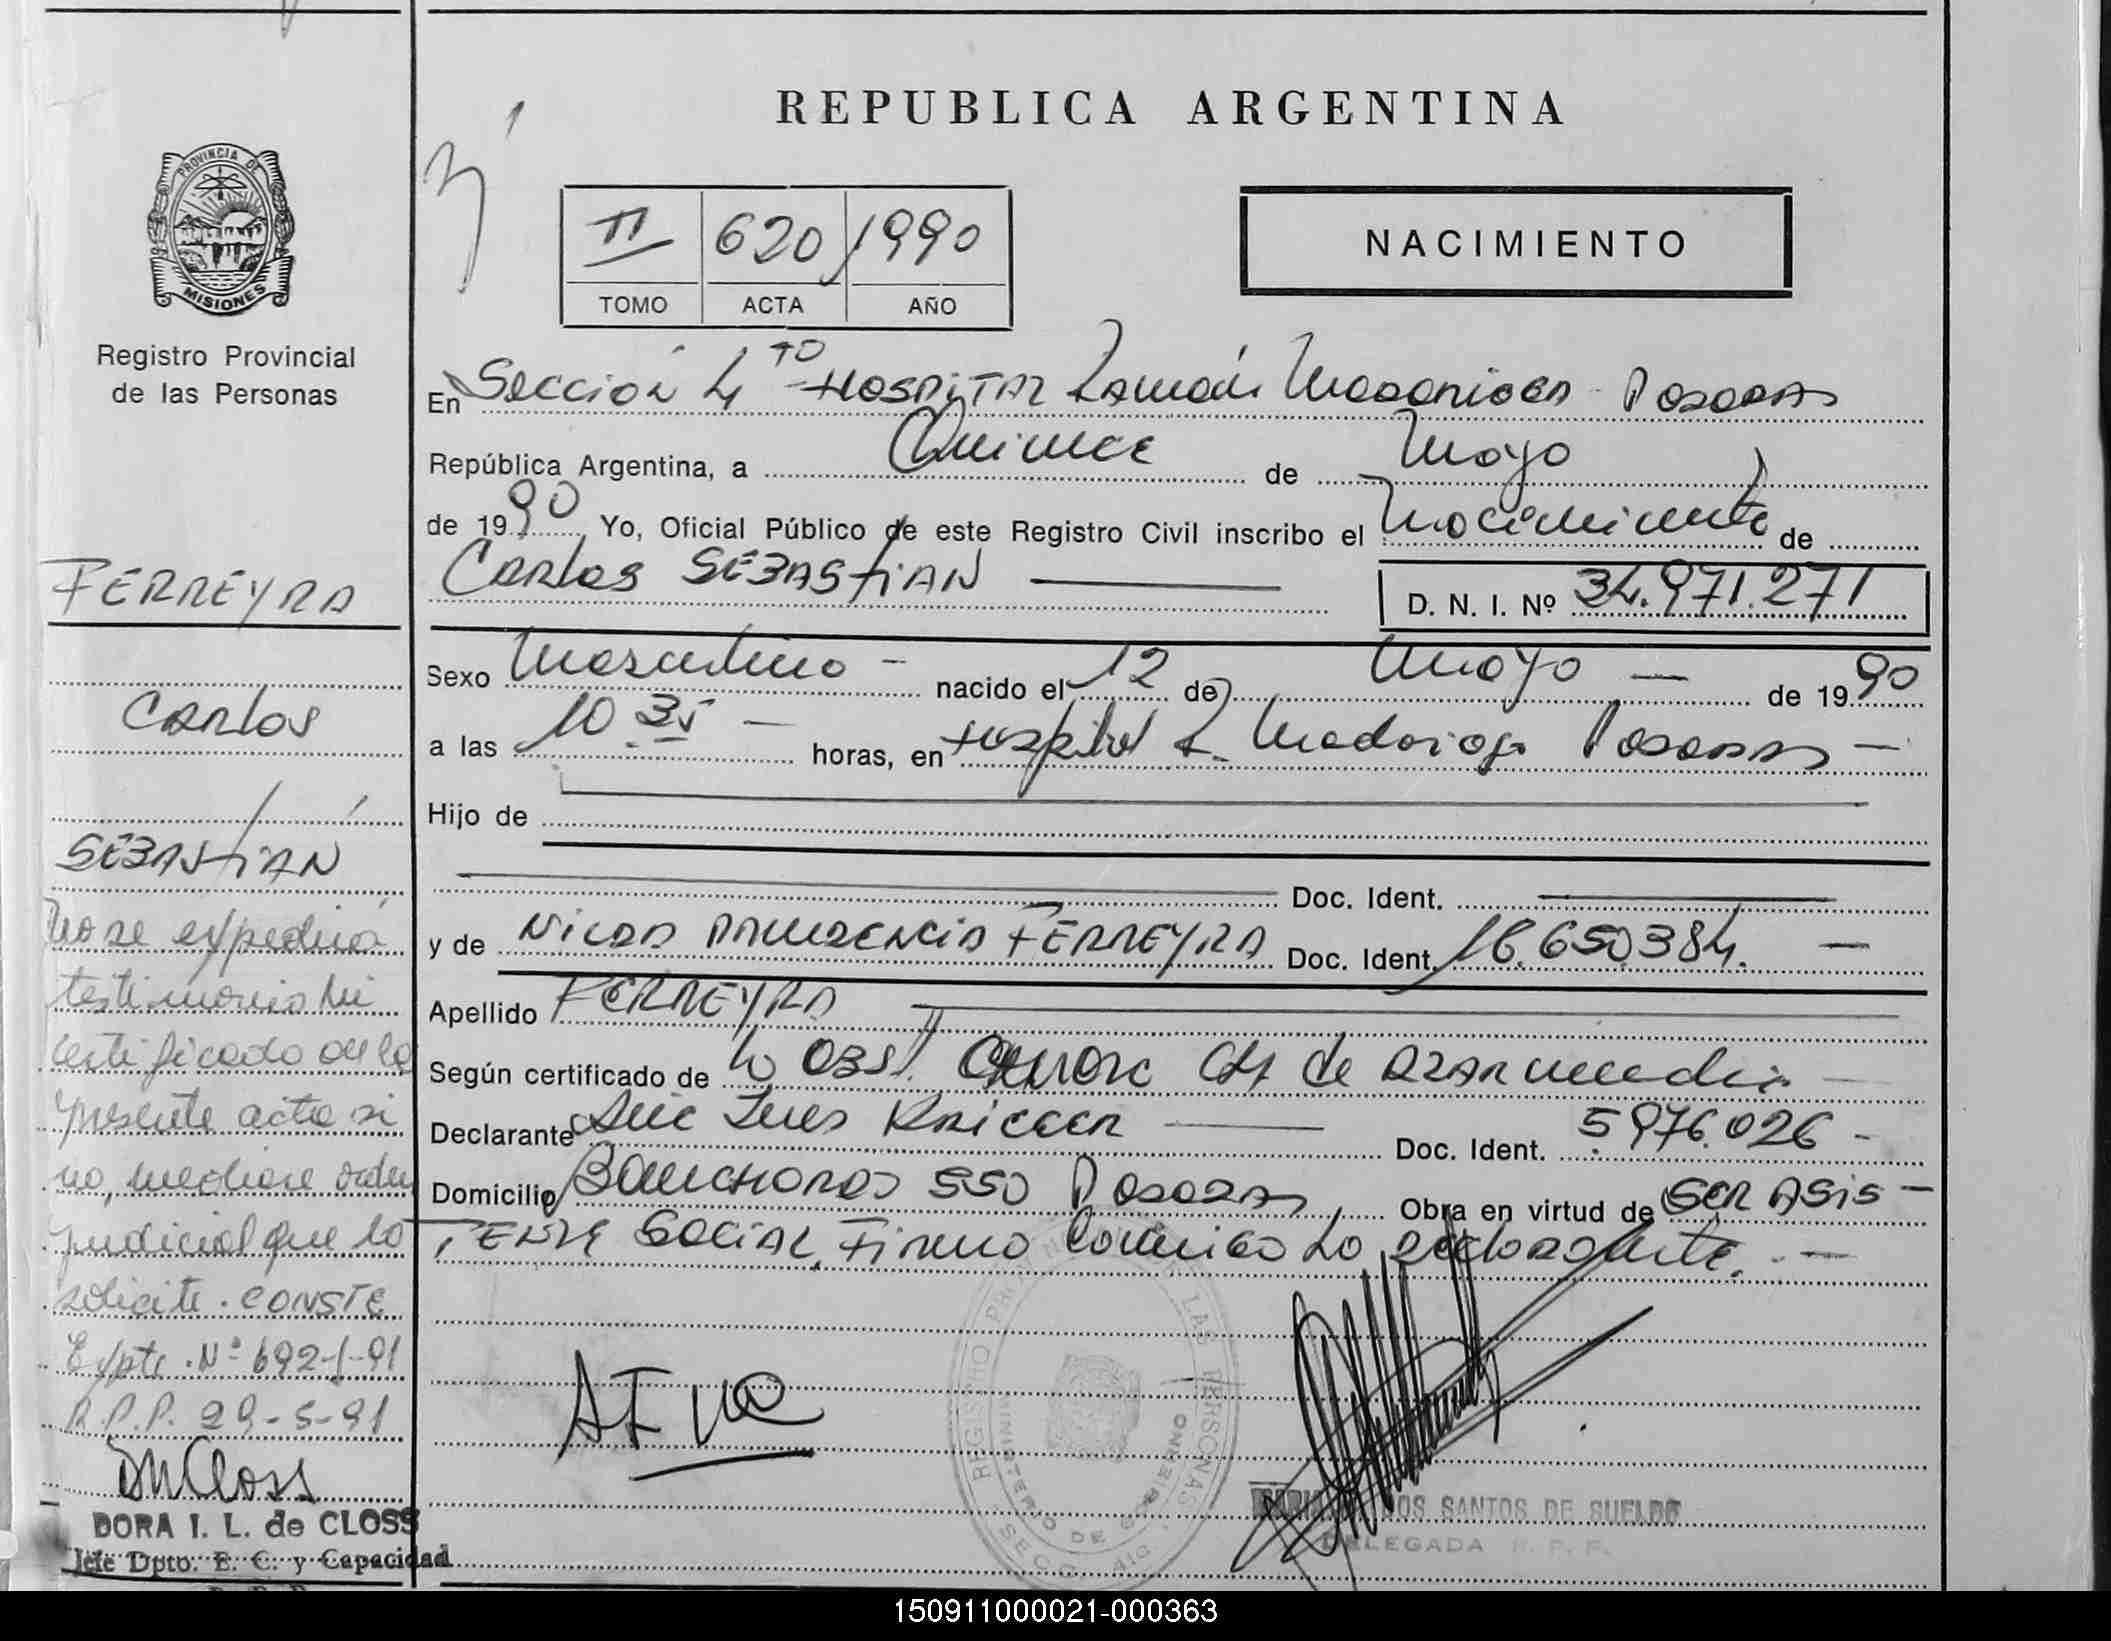 REPUBLICA ARGENTINA
PROVINCIA DE
MISIONES
Registro Provincial
de las Personas
II 620 1990
TOMO ACTA AÑO
NACIMIENTO
En Sección 4 TO Hospital Ramón Madariaga Posadas
República Argentina, a Quince de Mayo
de 1990 Yo, Oficial Público de este Registro Civil inscribo el Nacimiento de
Carlos SEBASTIAN D. N. I. Nº 34.971.271
Sexo Masculino - nacido el 12 de Mayo — de 1990
a las 10.35 — horas, en Hospital R. Madariaga Posadas —
Hijo de
Doc. Ident.
y de FERREYRA Doc. Ident. 16.650.384. —
Apellido FERREYRA
Según certificado de la Obst. de —
Declarante Doc. Ident. 5.976.026 -
Domicilio 550 Posadas Obra en virtud de SER ASIS-
TENTE SOCIAL, Firma conmigo la declarante. —
FERREYRA
Carlos
SEBASTIAN
No se expedirá
testimonio ni
certificado de la
presente acta si
no, mediare orden
judicial que lo
solicite. CONSTE
Expte. Nº 692-f-91
R.P.P. 29-5-91
DORA I. L. de CLOSS
Jefe Dpto. E. C. y Capacidad
REGISTRO PROVINCIAL DE LAS PERSONAS
MINISTERIO DE GOBIERNO
DOS SANTOS DE SUELDO
DELEGADA R. P. P.
150911000021-000363